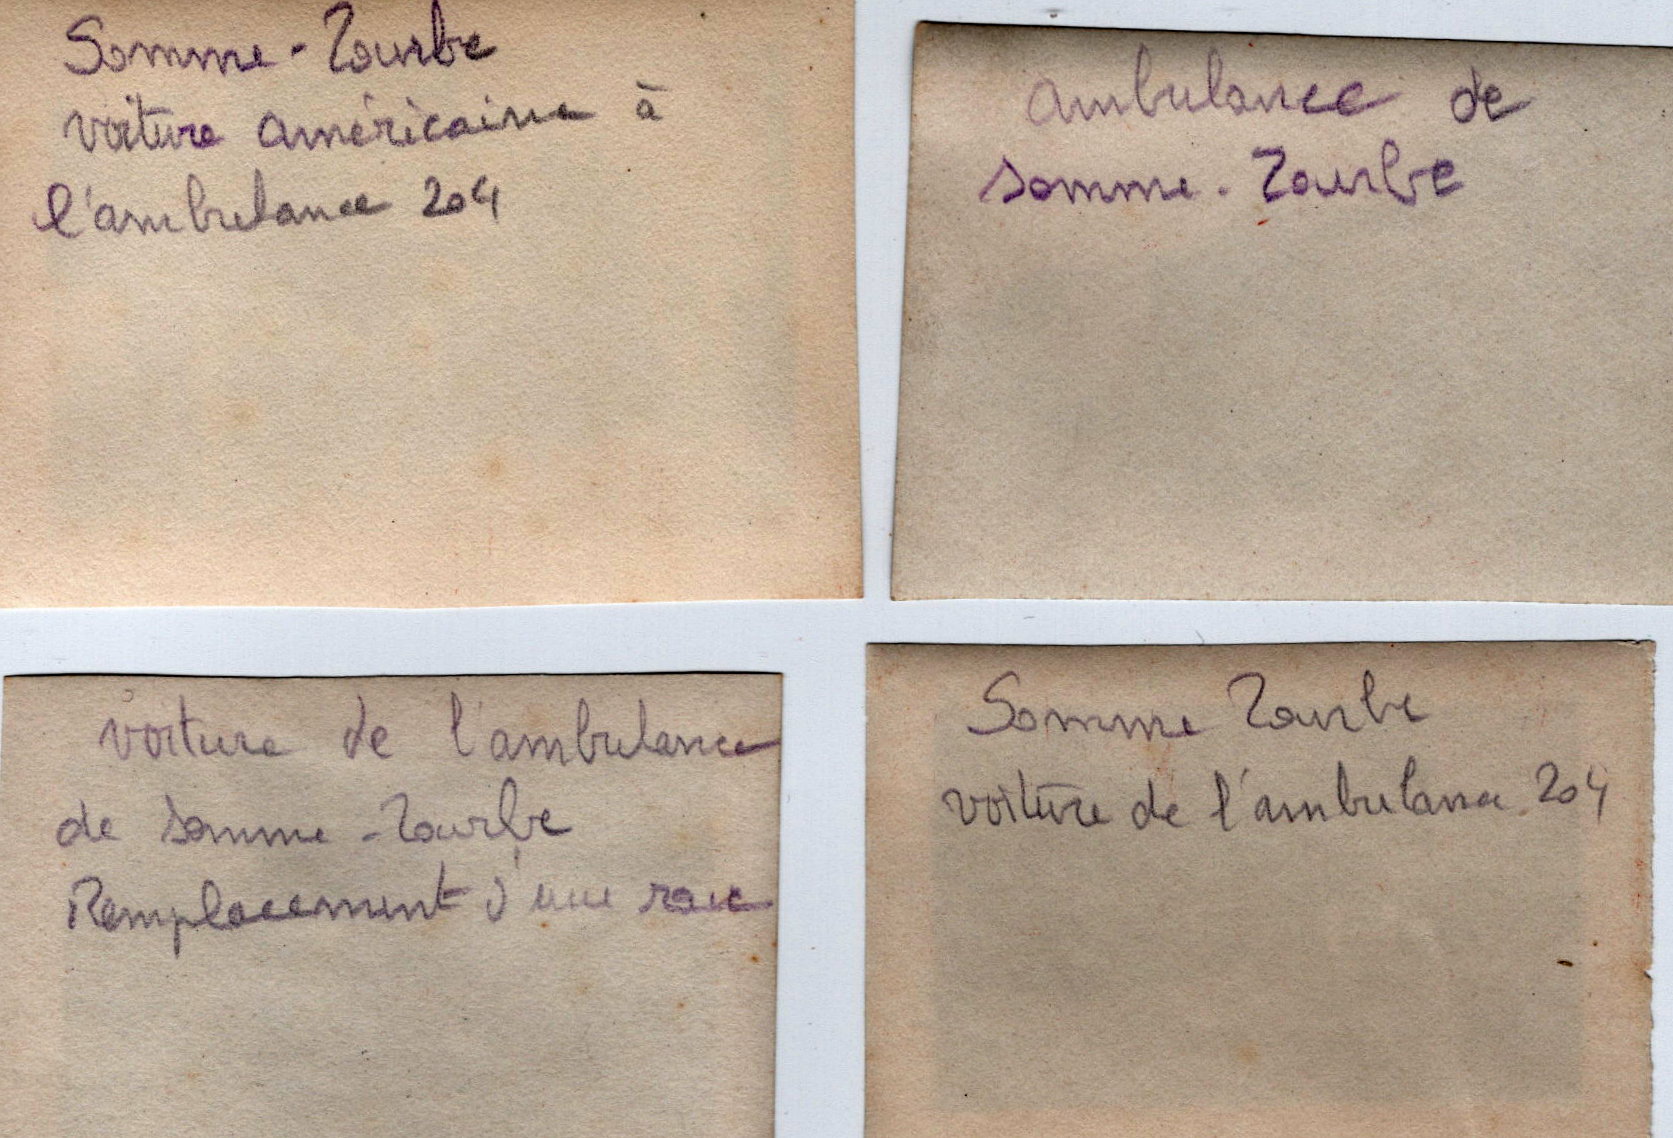 Somme-Tourbe
voiture américaine à
l'ambulance 204
Ambulance de
Somme-Tourbe
voiture de l'ambulance
de Somme-Tourbe
Remplacement d'une roue
Somme Tourbe
voiture de l'ambulance 204